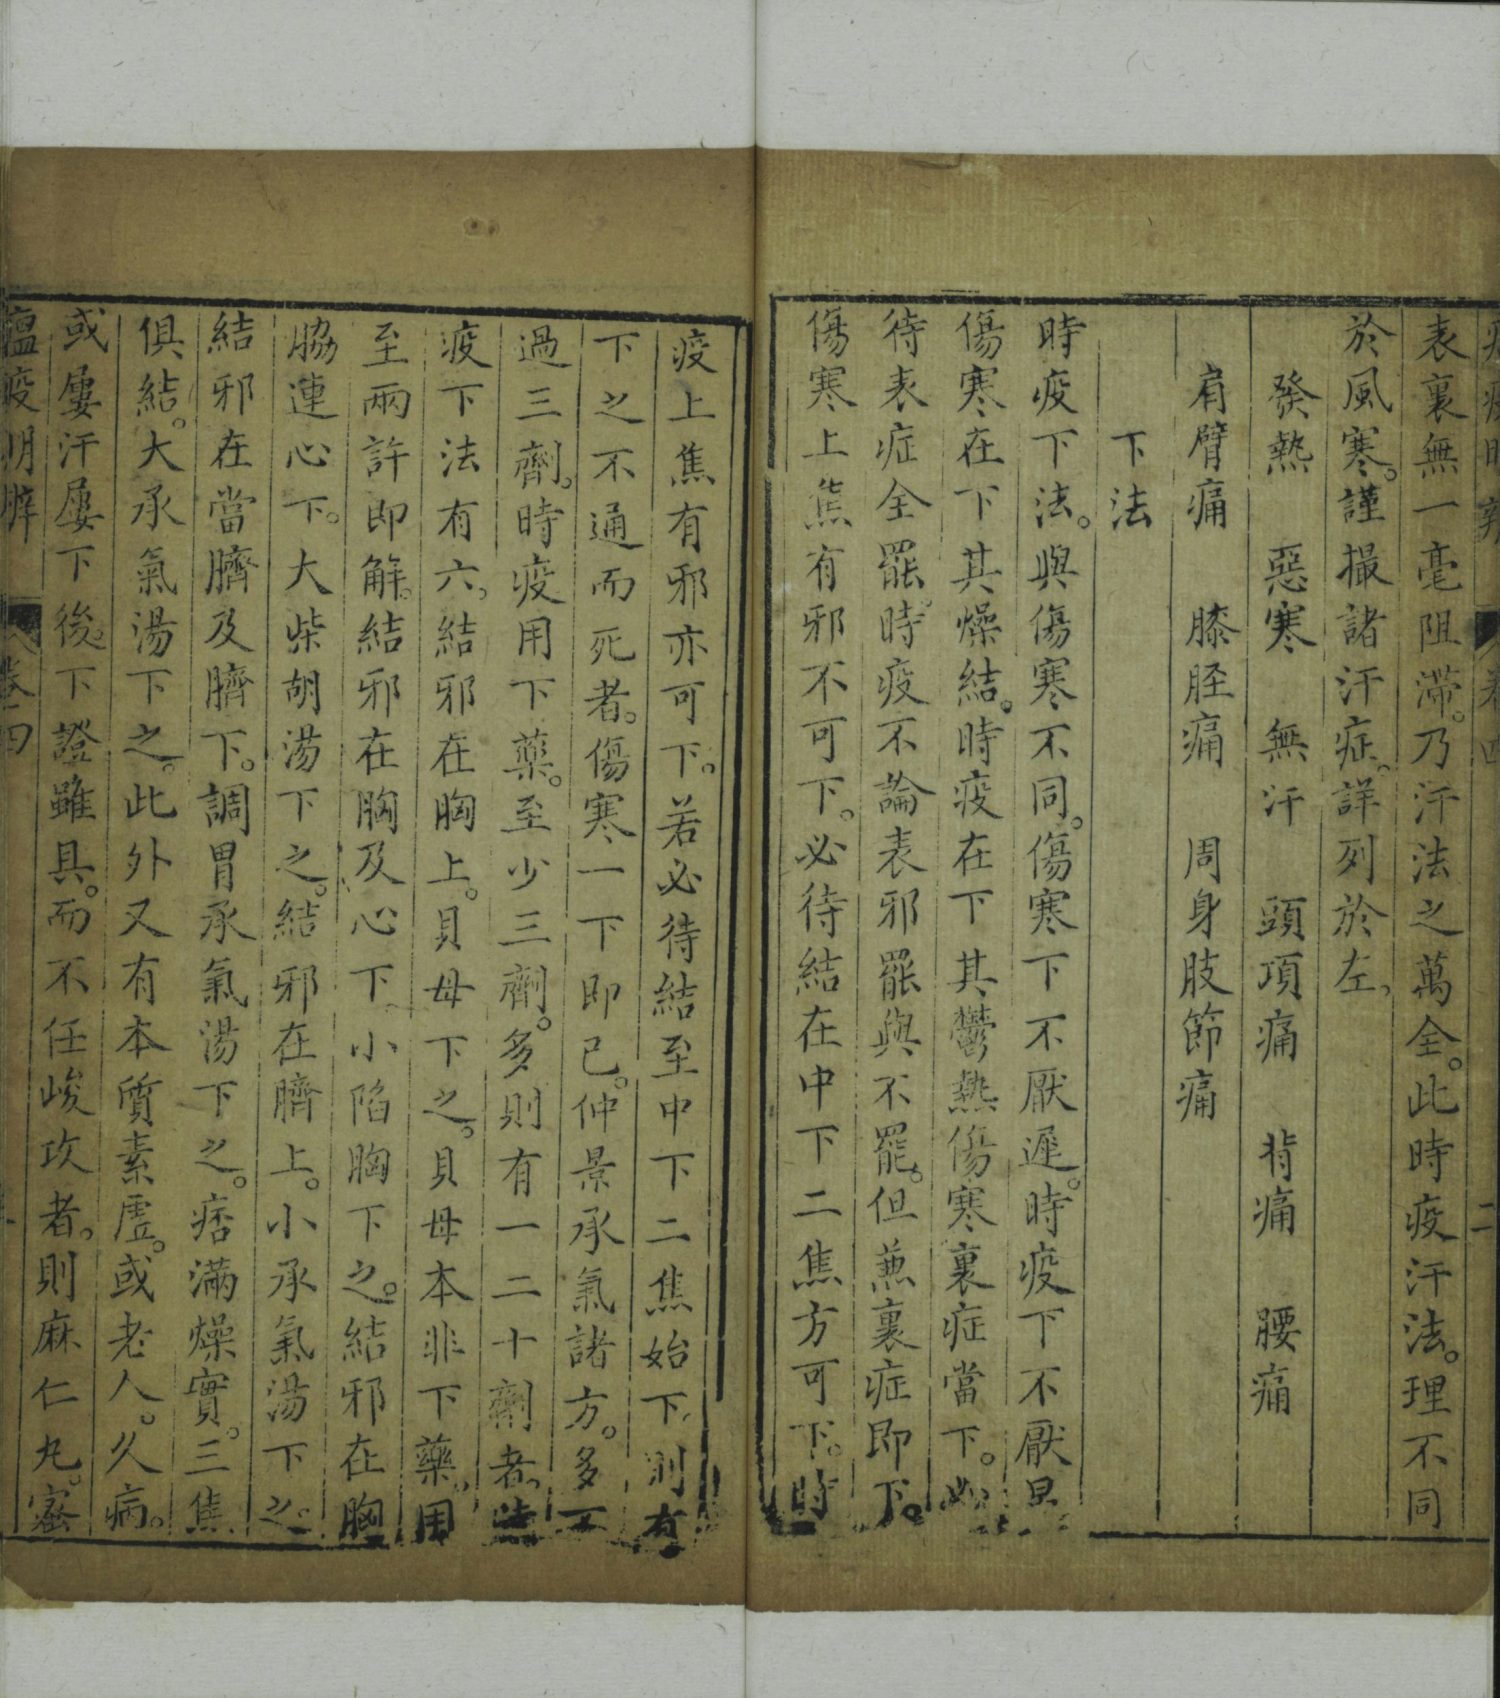 瘟疫明辨　卷四　二
表裏無一毫阻滯。乃汗法之萬全。此時疫汗法。理不同
於風寒。謹撮諸汗症。詳列於左。
發熱　惡寒　無汗　頭項痛　背痛　腰痛
肩臂痛　膝胫痛　周身肢節痛
下法
時疫下法。與傷寒不同。傷寒下不厭遲。時疫下不厭早
傷寒在下其燥結。時疫在下其鬱熱傷寒裏症當下。必
待表症全罷。時疫不論表邪罷與不罷。但兼裏症即下。
傷寒上焦有邪不可下。必待結在中下二焦方可下。時
疫上焦有邪亦可下。若必待結至中下二焦始下則有
下之不通而死者。傷寒一下即已。仲景承氣諸方。多不
過三劑。時疫用下藥。至少三劑。多則有一二十劑者。時
疫下法有六。結邪在胸上。貝母下之。貝母本非下藥。用
至兩許即解。結邪在胸及心下。小陷胸下之。結邪在胸
脇連心下。大柴胡湯下之。結邪在臍上。小承氣湯下之。
結邪在當臍及臍下。調胃承氣湯下之。痞滿燥實。三焦
俱結。大承氣湯下之。此外又有本質素虛。或老人。久病。
或屢汗屢下後。下證雖具。而不任峻攻者。則麻仁丸。蜜
瘟疫明辨　卷四